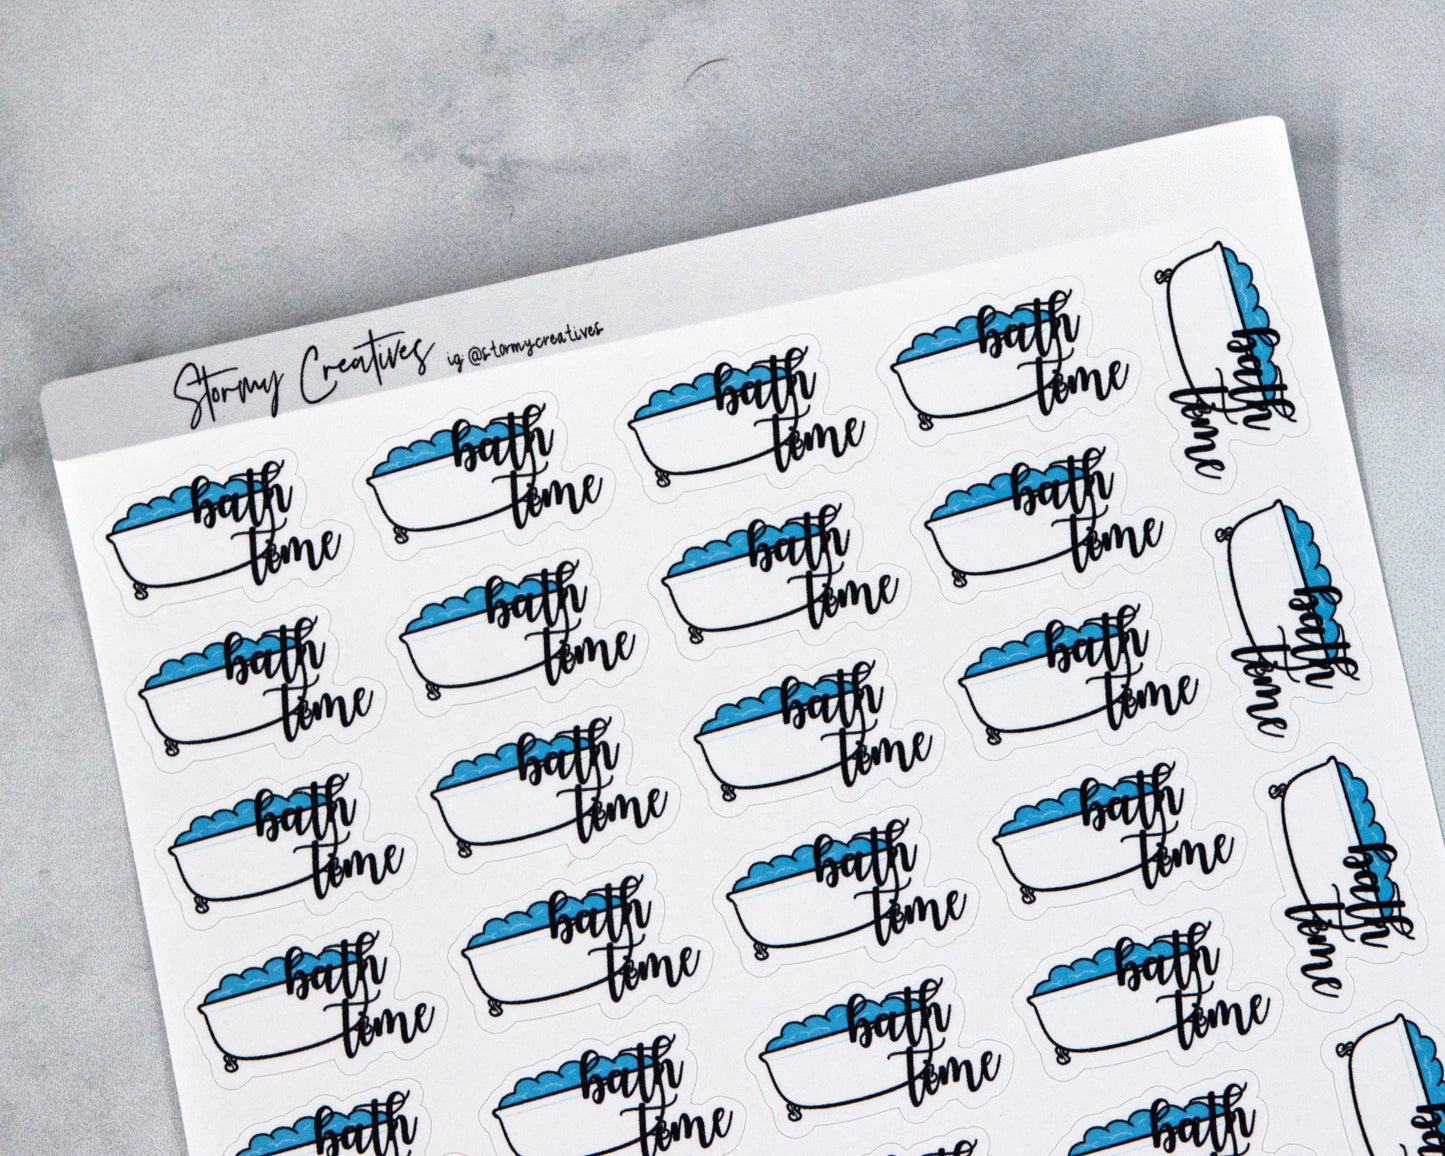 Stormy Creatives ig @stormycreatives
bath
time
bath
time
bath
time
bath
time
bath
time
bath
time
bath
time
bath
time
bath
time
bath
time
bath
time
bath
time
bath
time
bath
time
bath
time
bath
time
bath
time
bath
time
bath
time
bath
time
bath
time
bath
time
bath
time
bath
bath
bath